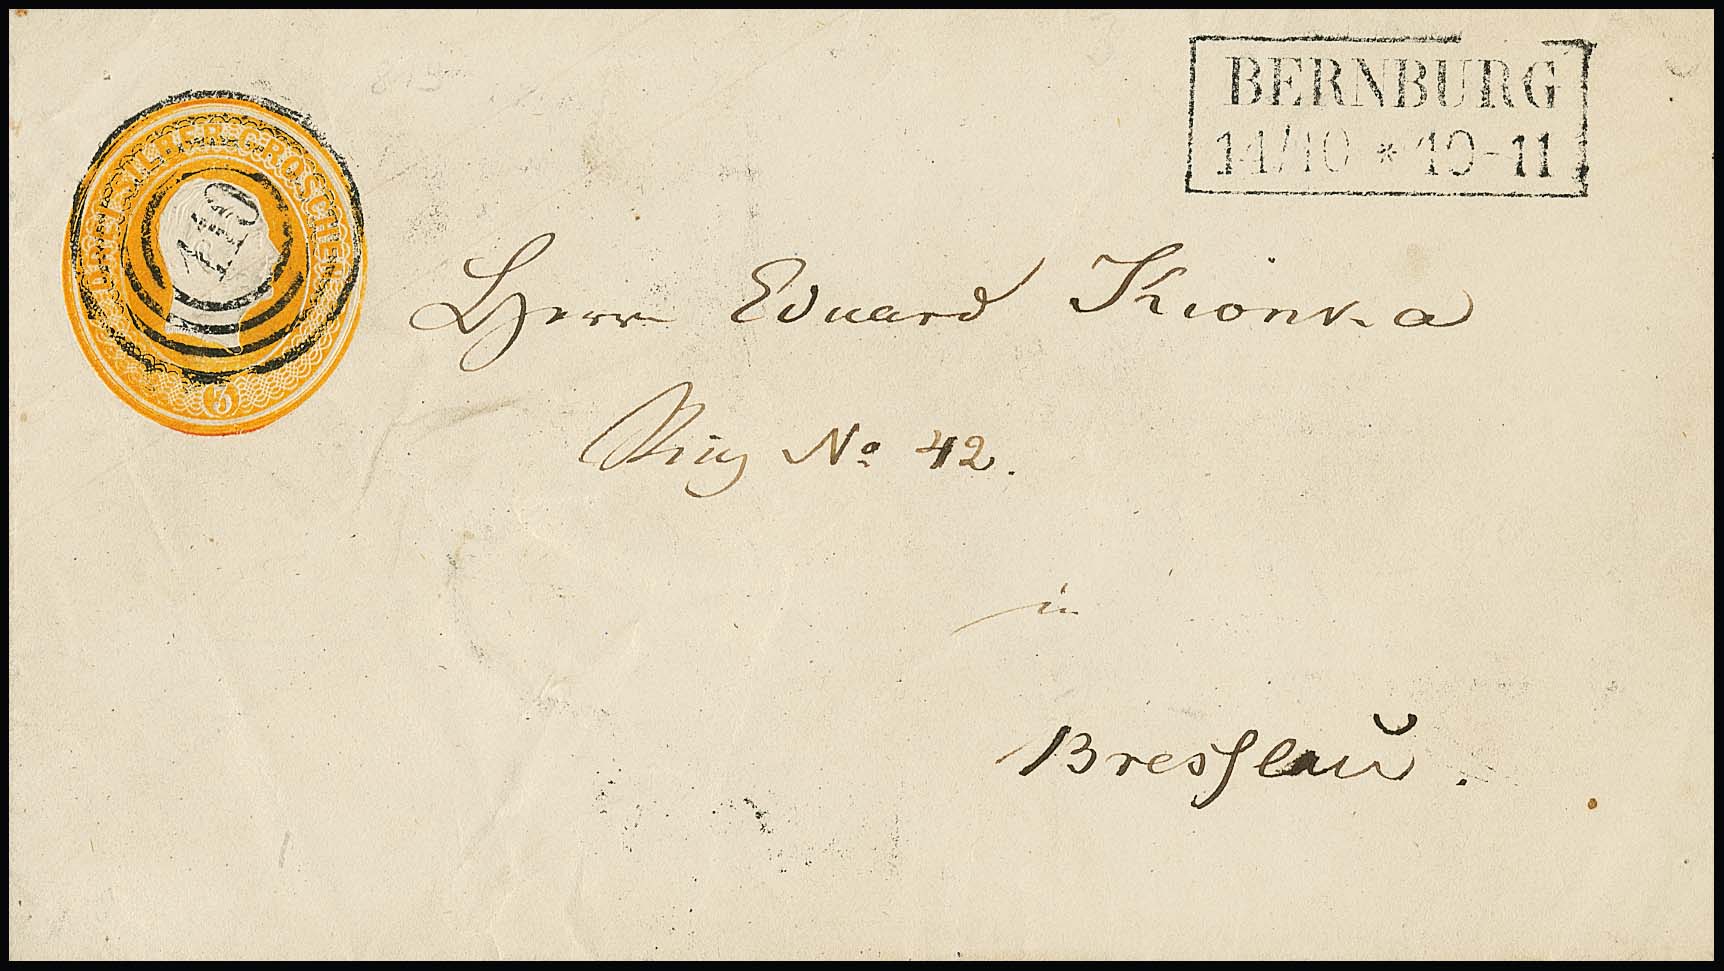 DREI SILBER GROSCHEN
110
3
BERNBURG
14/10 * 10-11
Herr Eduard Kionka
Ring No 42.
in
Bresslau.